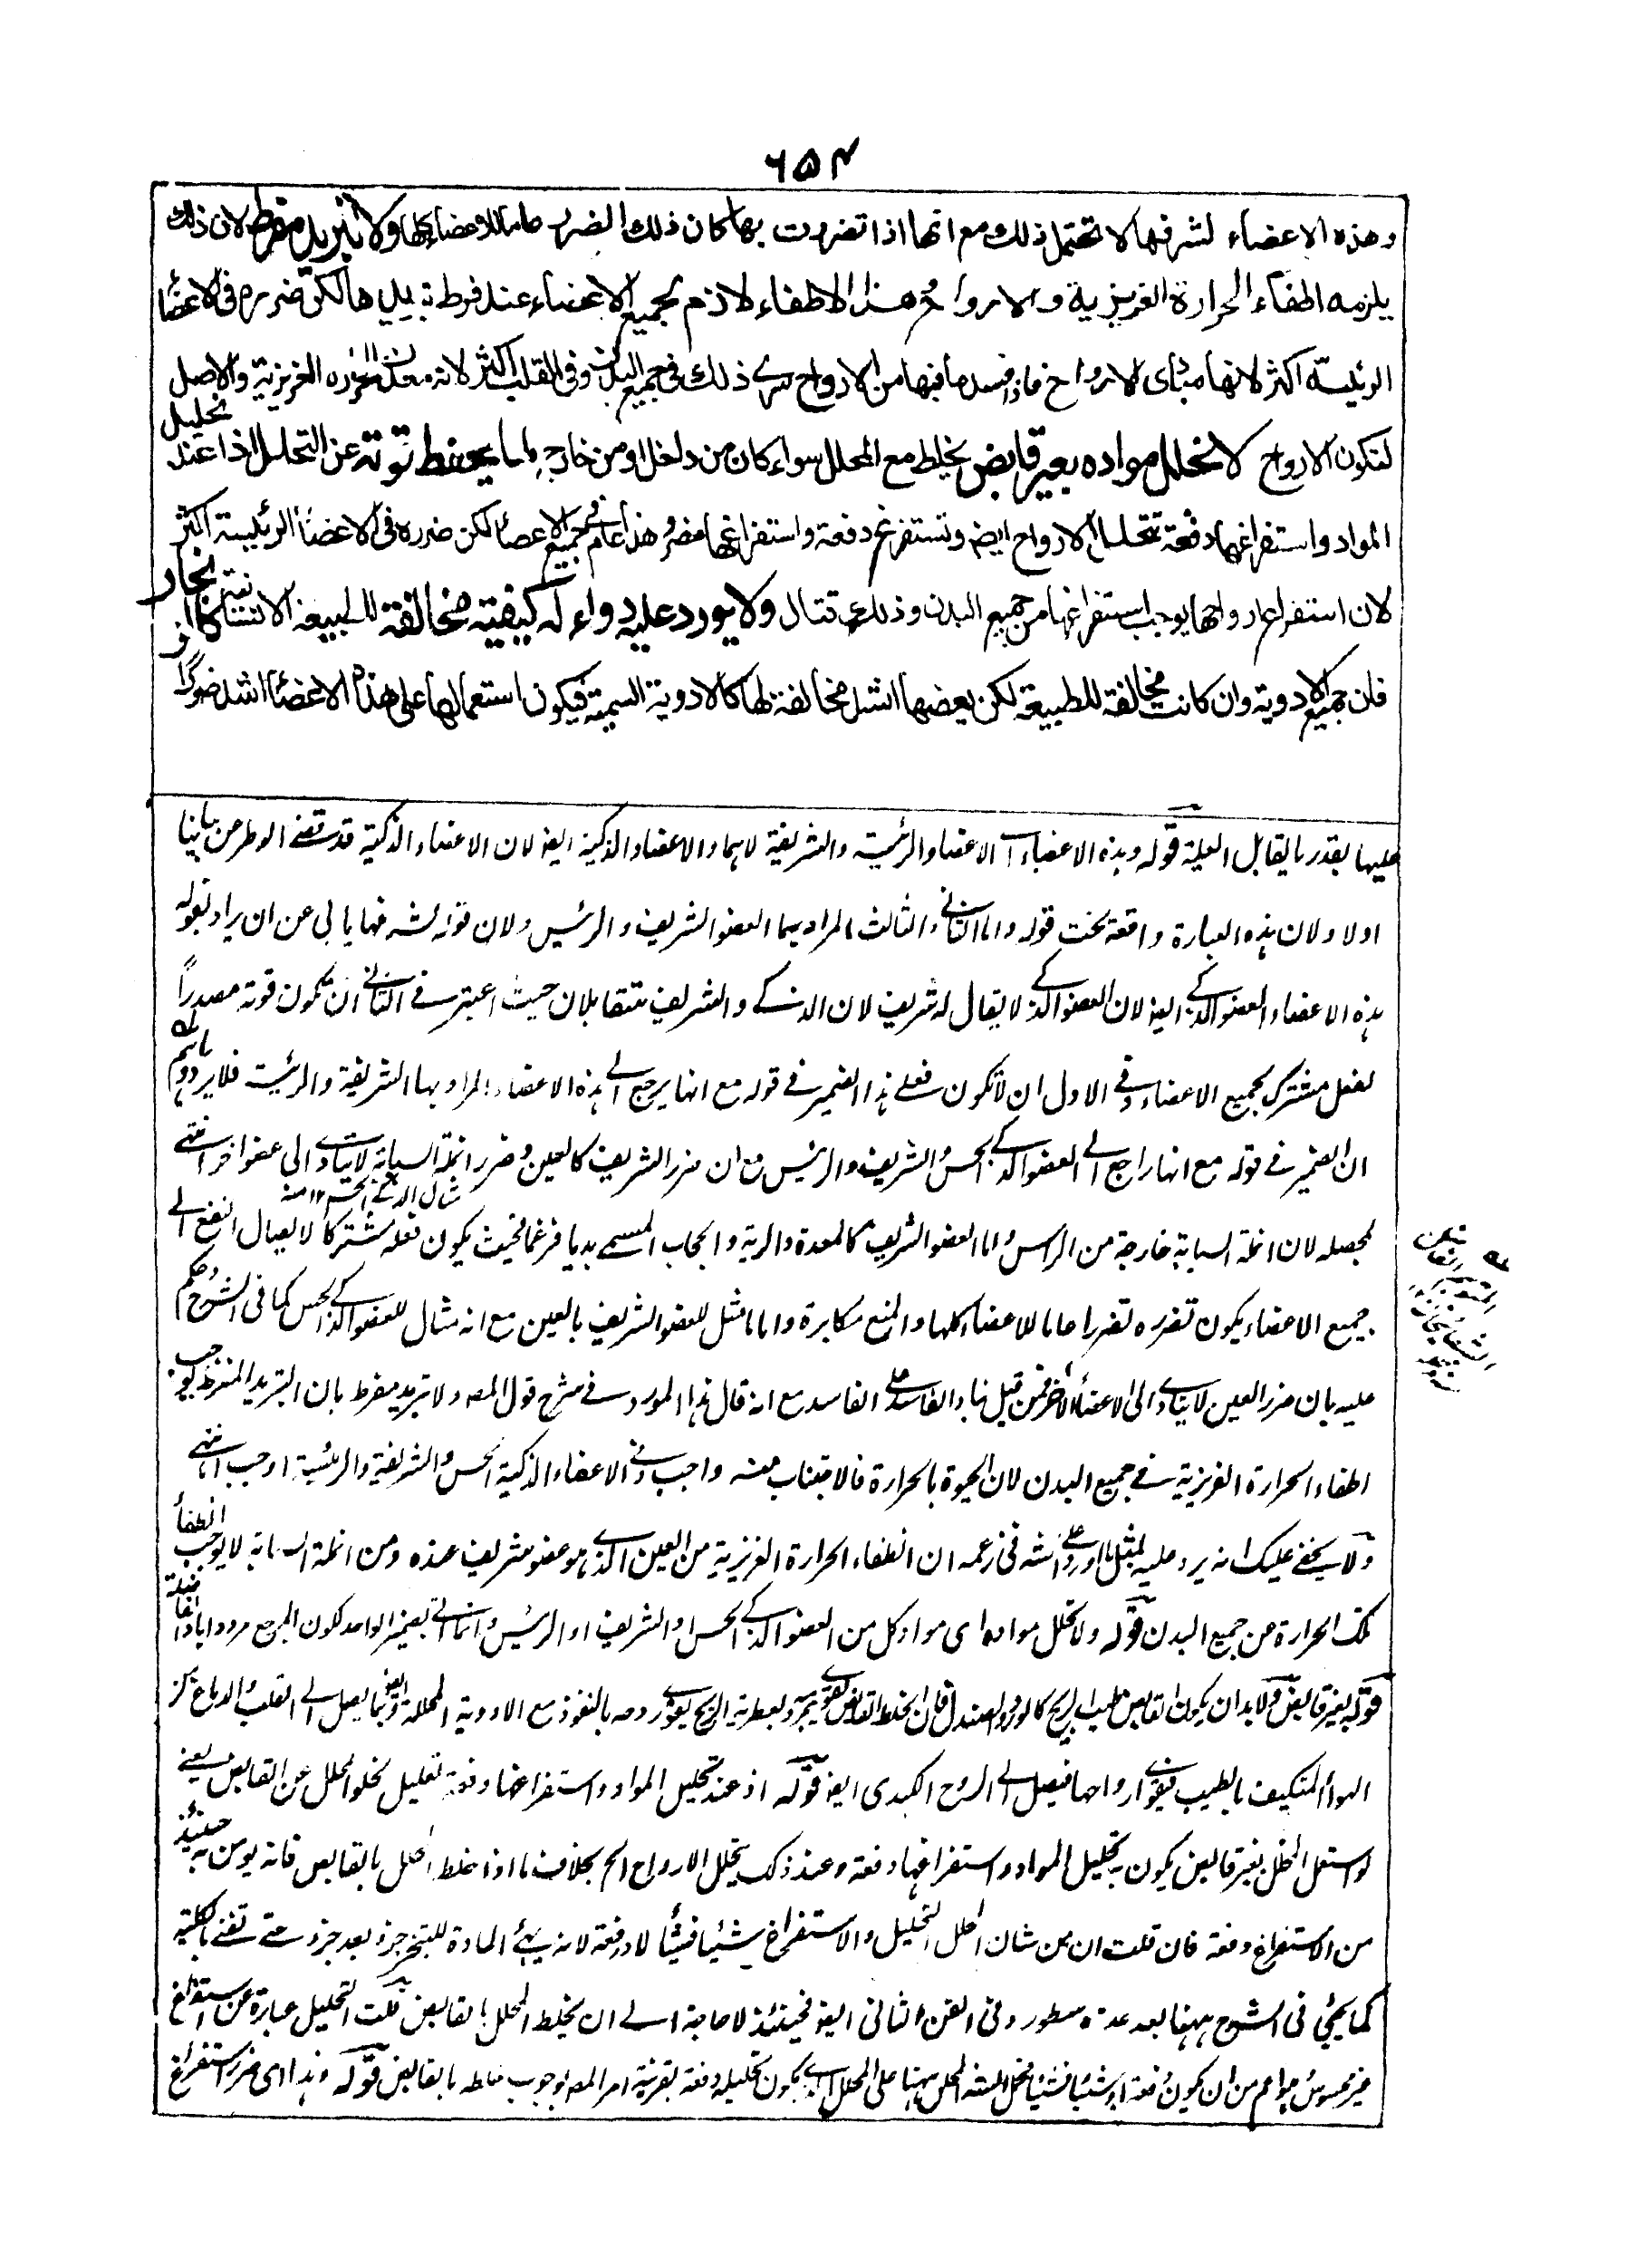 ۶۵۴
وهذه الاعضاء لشرفها لا تحتمل ذلك مع انها اذا تضررت بها كان ذلك الضرر عاما للاعضاء كلها ولا بتبريد مفرط لان ذلك
يلزمه اطفاء الحرارة الغريزية والارواح وهذا الاطفاء لازم لجميع الاعضاء عند فرط تبريدها لكن ضرره فى الاعضاء
الرئيسة اكثر لانها مبادى الارواح فاذا فسد ما فيها من الارواح سرى ذلك فى جميع البدن وفى القلب اكثر لانه معدن الحرارة الغريزية والاصل
لتكون الارواح ولا تحلل مواده بغير قابض يخلط مع المحلل سواء كان من داخل او من خارج ما يحفظ قوته عن التحلل اذ عند تحليل
المواد واستفراغها دفعة تتحلل الارواح ايضا وتستفرغ دفعة واستفراغها مضر وهذا عام فى جميع الاعضاء لكن ضرره فى الاعضاء الرئيسة اكثر
لان استفراغ ارواحها يوجب استفراغها من جميع البدن وذلك قتال ولا يورد عليه دواء له كيفية مخالفة للطبيعة الانسانية كالزنجار
فان جميع الادوية وان كانت مخالفة للطبيعة لكن بعضها اشد مخالفة لها كالادوية السمية فيكون استعمالها على هذه الاعضاء اشد ضررا
عليها بقدر ما يقابل العلية قوله وهذه الاعضاء اى الاعضاء الرئيسة والشريفة لا هما والاعضاء الذكية ايضا لان الاعضاء الذكية قد قضى الوطر من بيانها
اولا ولان هذه العبارة واقعة تحت قوله واما الثانى والثالث المراد بهما العضو الشريف والرئيس ولان قوله لشرفها يابى عن ان يراد بقوله
هذه الاعضاء العضو الذكى ايضا لان العضو الذكى لا يقال له شريف لان الذكى والشريف متقابلان حيث اعتبر فى الثانى ان تكون قوته مصدرا
لفعل مشترك لجميع الاعضاء وفى الاول ان لا تكون فعلى هذا الضمير فى قوله مع انها يرجع الى هذه الاعضاء المراد بها الشريفة والرئيسة فلا يرد
ان الضمير فى قوله مع انها راجع الى العضو الذكى الحس والشريف والرئيس مع ان ضرر الشريف كالعين وضرر انملة السبابة لا يتادى الى عضو اخر انتهى
مثال الذكى الحس ١٢ منه
لمحصله لان انملة السبابة خارجة من الراس واما العضو الشريف كالمعدة والرية والحجاب المسمى بديافرغما فحيث يكون فعله مشتركا لايصال النفع الى
جميع الاعضاء يكون تضرره تضررا عاما للاعضاء كلها والمنع مكابرة واما ما مثل للعضو الشريف بالعين مع انه مثال للعضو الذكى الحس كما فى الشرح وحكم
عليه بان ضرر العين لا يتادى الى الاعضاء الاخر فمن قبيل بناء الفاسد على الفاسد مع انه قال هذا المورد فى شرح قول المصـ ولا تبريد مفرط بان التبريد المفرط يوجب
اطفاء الحرارة الغريزية فى جميع البدن لان الحيوة بالحرارة فالاجتناب منه واجب وفى الاعضاء الذكية الحس والشريفة والرئيسة اوجب انتهى
ولا يخفى عليك انه يرد عليه بمثل ما اورد على الشـ فى زعمه ان انطفاء الحرارة الغريزية من العين الذى هو عضو شريف عنده ومن انملة السبابة لا يوجب انطفاء
تلك الحرارة عن جميع البدن قوله ولا تحلل مواده اى مواد كل من العضو الذكى الحس او الشريف او الرئيس وانما اتى بضمير الواحد لكون المرجع مرددا
قوله بغير قابض ولا بد ان يكون القابض طيب الريح كالورد والصندل فان
الهواء المتكيف بالطيب فيقوى ارواحها فيصل الى الروح الكبدى ايضا قوله اذ عند تحليل المواد واستفراغها دفعة تعليل لخلو المحلل عن القابض يعنى
لو استعمل المحلل بغير قابض يكون به تحليل المواد واستفراغها دفعة وعند ذلك يتحلل الارواح الخ بخلاف ما اذا خلط المحلل بالقابض فانه يومن به حينئذ
من الاستفراغ دفعة فان قلت ان من شان المحلل التحليل والاستفراغ شيئا فشيئا لا دفعة لانه يهيئ المادة للتبخر جزء بعد جزء حتى تفنى بالكلية
كما يجئ فى الشرح ههنا بعد عدة سطور وفى الفن الثانى ايضا فحينئذ لا حاجة الى ان يخلط المحلل بالقابض قلت التحليل عبارة عن استفراغ
غير محسوس هو اعم من ان يكون دفعة او شيئا فشيئا فحمل الشـ المحلل ههنا على المحلل الذى يكون تحليله دفعة بقرينة امر المصـ بوجوب خلطه بالقابض قوله وهذا اى ضرر استفراغ